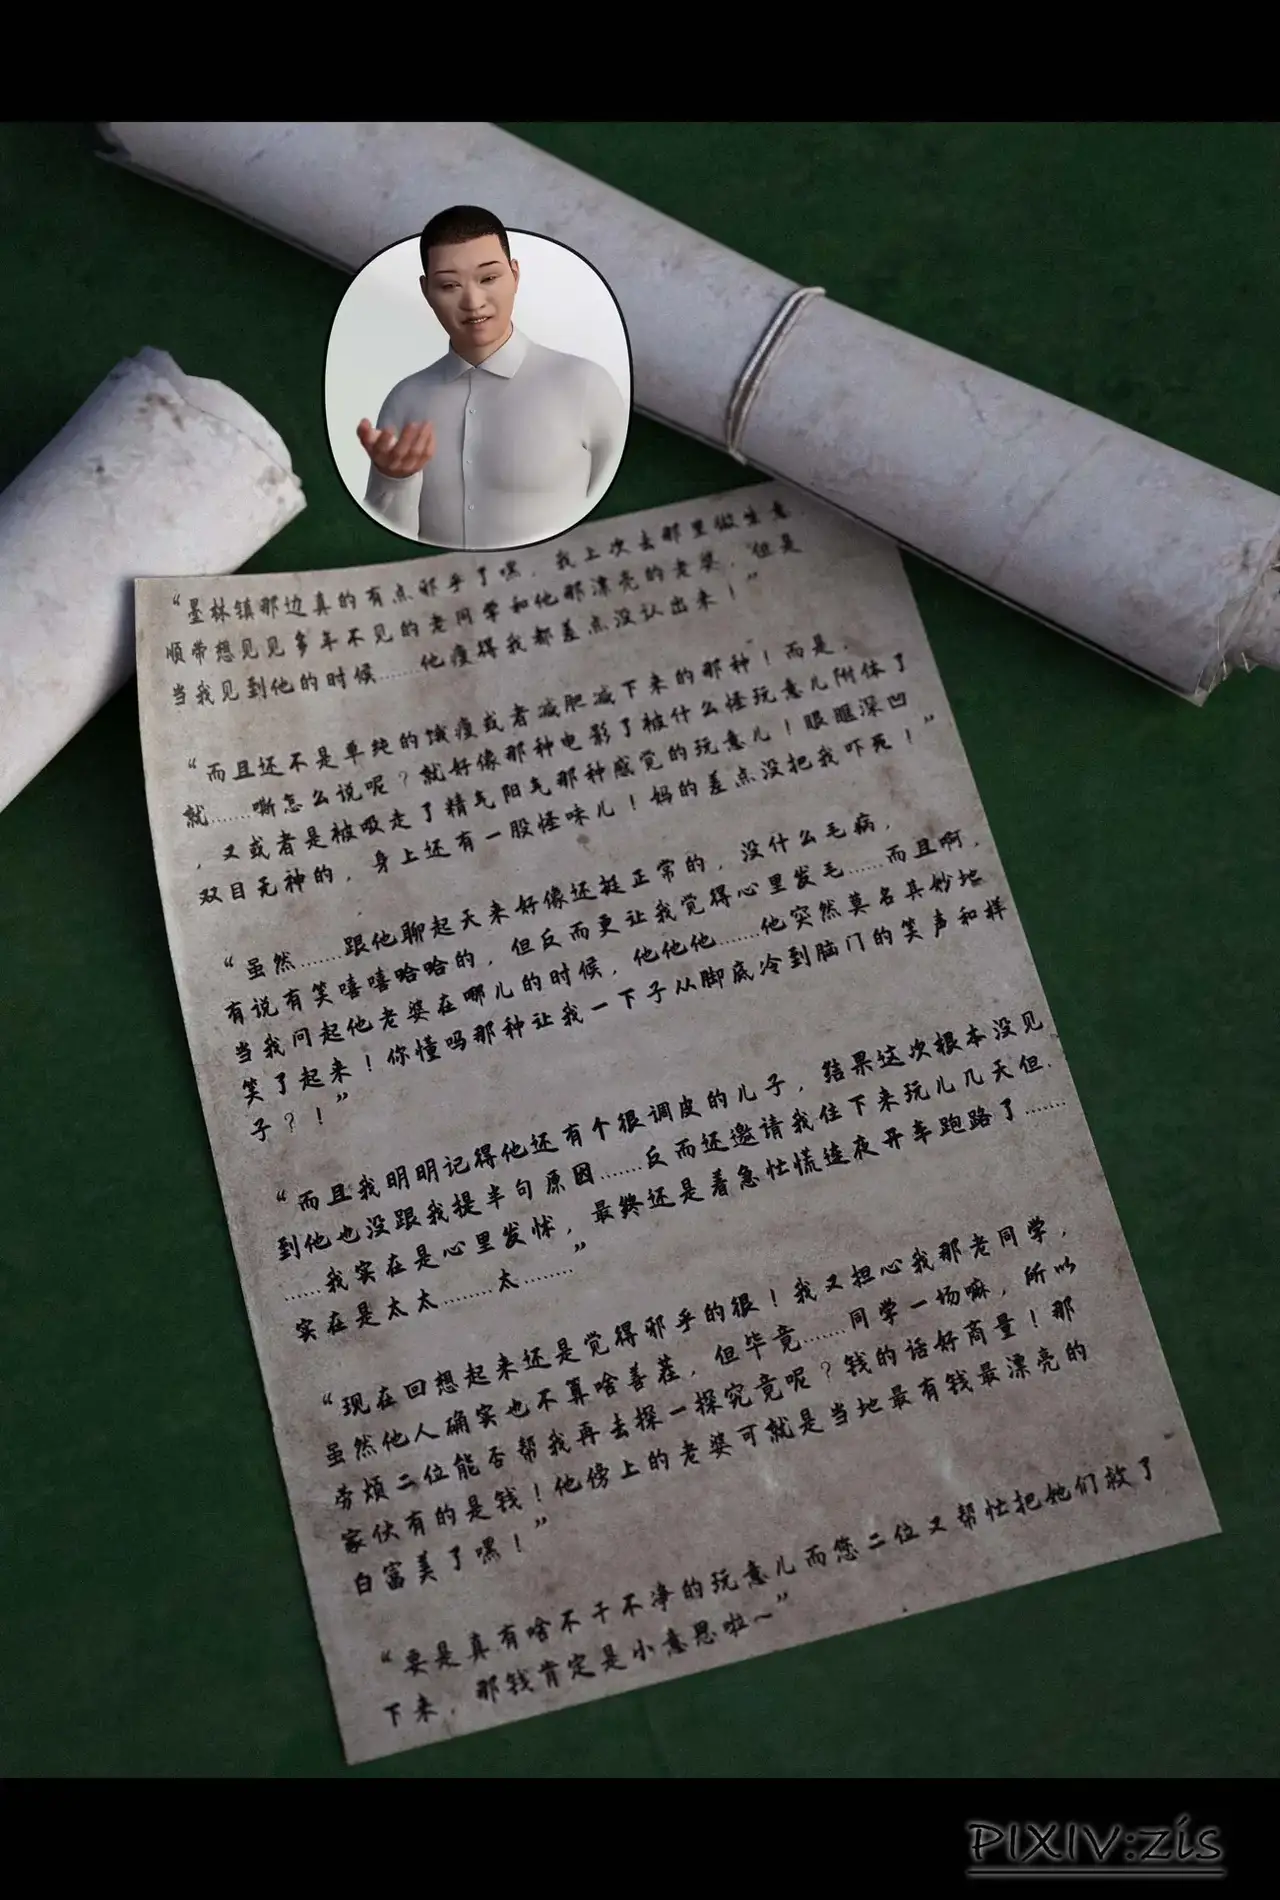 “墨林镇那边真的有点邪乎了嘿，我上次去那里做生意，
顺带想见见多年不见的老同学和他那漂亮的老婆，但是
当我见到他的时候……他瘦得我都差点没认出来！”
“而且还不是单纯的饿瘦或者减肥减下来的那种！而是，
就……嘶怎么说呢？就好像那种电影了被什么怪玩意儿附体了
，又或者是被吸走了精气阳气那种感觉的玩意儿！眼眶深凹
双目无神的，身上还有一股怪味儿！妈的差点没把我吓死！”
“虽然……跟他聊起天来好像还挺正常的，没什么毛病，
有说有笑嘻嘻哈哈的，但反而更让我觉得心里发毛……而且啊，
当我问起他老婆在哪儿的时候，他他他……他突然莫名其妙地
笑了起来！你懂吗那种让我一下子从脚底冷到脑门的笑声和样
子？！”
“而且我明明记得他还有个很调皮的儿子，结果这次根本没见
到他也没跟我提半句原因……反而还邀请我住下来玩儿几天但.
……我实在是心里发怵，最终还是着急忙慌连夜开车跑路了……
实在是太太……太……”
“现在回想起来还是觉得邪乎的很！我又担心我那老同学，
虽然他人确实也不算啥善茬，但毕竟……同学一场嘛，所以
劳烦二位能否帮我再去探一探究竟呢？钱的话好商量！那
家伙有的是钱！他傍上的老婆可就是当地最有钱最漂亮的
白富美了嘿！”
“要是真有啥不干不净的玩意儿而您二位又帮忙把她们救了
下来，那钱肯定是小意思啦~”
PIXIV:zis